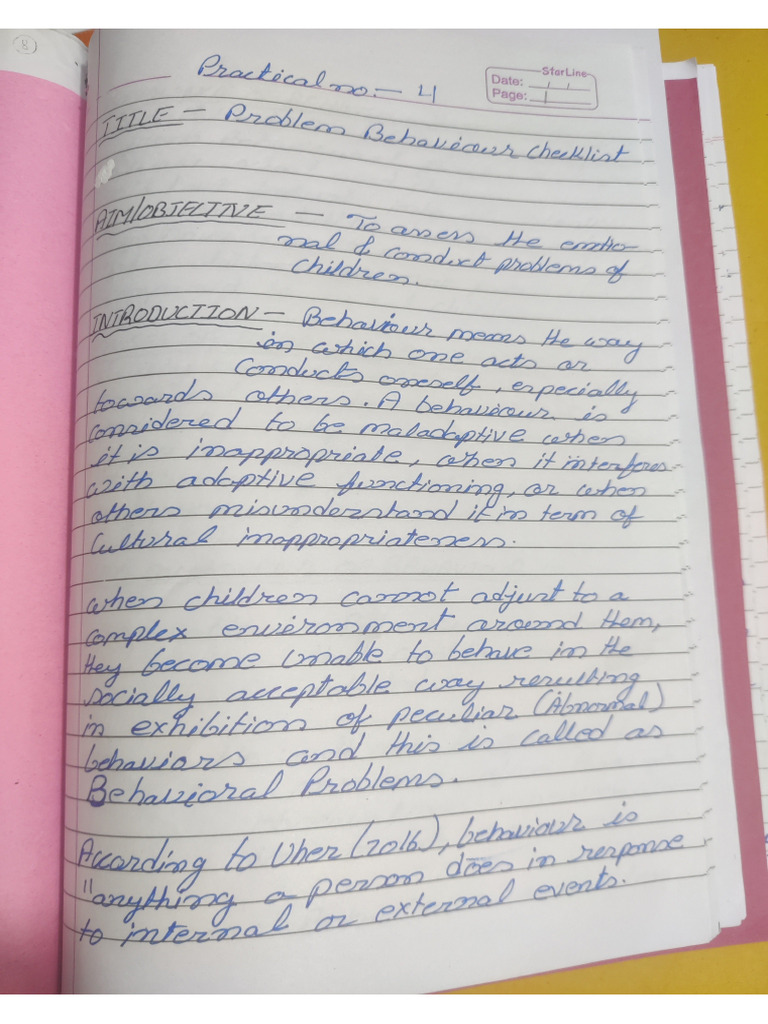 8
Practical no. - 4
StarLine
Date: / /
Page: 1
TITLE - Problem Behaviour Checklist
AIM/OBJECTIVE - To assess the emotio-
nal & conduct problems of
children.
INTRODUCTION - Behaviour means the way
in which one acts or
conducts oneself, especially
towards others. A behaviour is
considered to be maladaptive when
it is inappropriate, when it interferes
with adaptive functioning, or when
others misunderstand it in term of
Cultural inappropriateness.
when children cannot adjust to a
complex environment around them,
they become unable to behave in the
socially acceptable way resulting
in exhibition of peculiar (Abnormal)
behaviors and this is called as
Behavioral Problems.
According to Uher (2016), behaviour is
"anything a person does in response
to internal or external events.